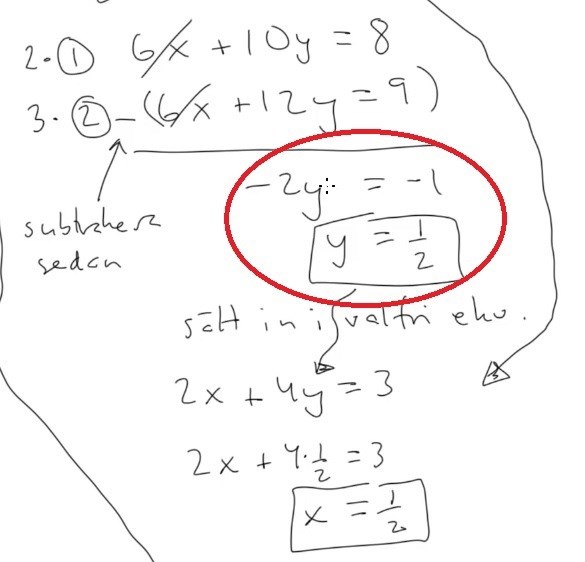 2·① 6x + 10y = 8
3·② -(6x + 12y = 9)
-2y = -1
subtrahera
sedan
y = 1/2
sätt in i valfri ekv.
2x + 4y = 3
2x + 4·1/2 = 3
x = 1/2